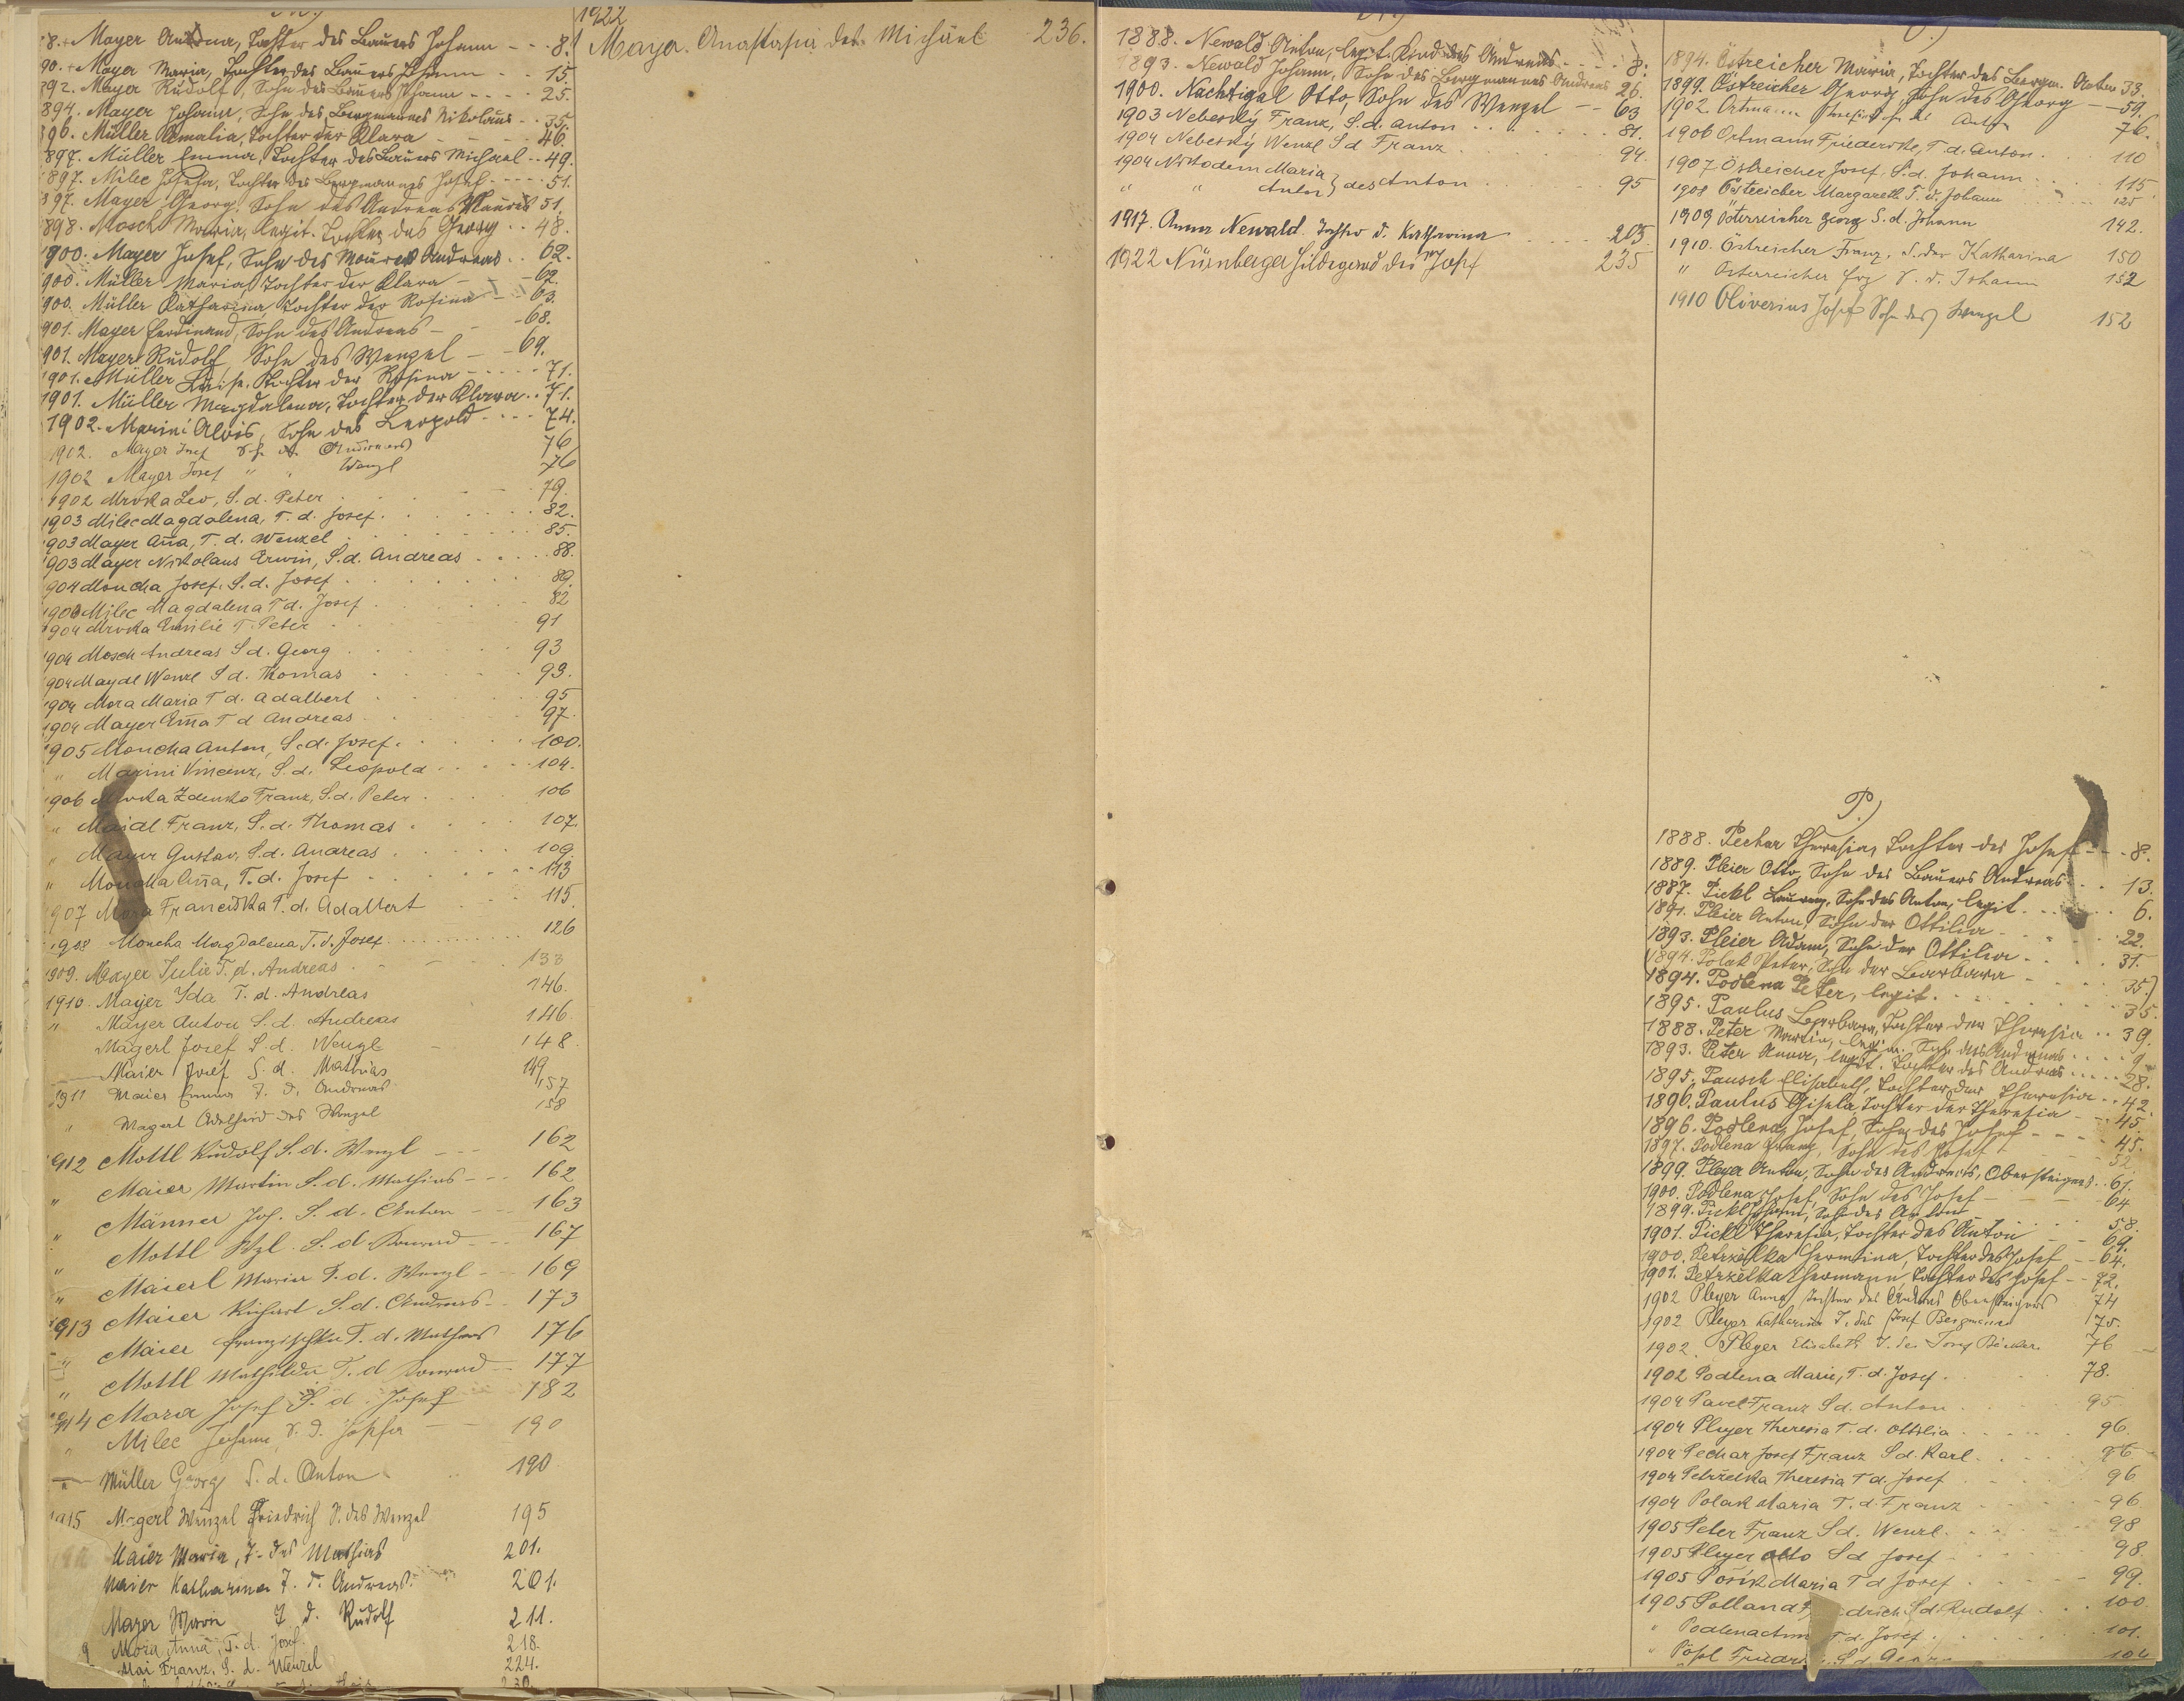 8. Mayer Antonia, Tochter des Bauers Johann - - 8.
90. Mayer Maria, Tochter des Bauers Johann - - 15.
892. Mayer Rudolf, Sohn des Bauers Johann - - - 25.
894. Mayer Johann, Sohn des Bergmannes Nikolaus - - 35.
896. Müller Amalia, Tochter der Klara - - - 46.
897. Müller Emma, Tochter des Bauers Michael - - 49.
897. Milec Josefa, Tochter des Bergmannes Josef - - - - 51.
897. Mayer Georg, Sohn des Andreas Maurers 51.
898. Mosch Maria, legit. Tochter des Georg - - 48.
900. Mayer Josef, Sohn des Maurers Andreas - - 62.
900. Müller Maria, Tochter der Klara - 62.
900. Müller Katharina, Tochter der Rosina - - 63.
901. Mayer Ferdinand, Sohn des Andreas - - 68.
901. Mayer Rudolf, Sohn des Wenzel - - 69.
1901. Müller Luise, Tochter der Rosina - - - - 71.
1901. Müller Magdalena, Tochter der Klara - - 71.
1902. Marini Alois, Sohn des Leopold - - - 74.
1902. Mayer Josef S. d. Andreas 76
1902 Mayer Josef " " Wenzl 76
1902 Mrvka Leo, S. d. Peter 79.
1903 Milec Magdalena, T. d. Josef 82.
903 Mayer Aña, T. d. Wenzel 85.
903 Mayer Nikolaus Erwin, S. d. Andreas 88.
904 Moucha Josef, S. d. Josef 89.
1903 Milec Magdalena T d. Josef 82
1904 Mrvka Emilie T. Peter 91
1904 Mosch Andreas S d. Georg 93
904 Maydl Wenzl S d. Thomas 93.
1904 Mora Maria T d. Adalbert 95
1904 Mayer Ema T d Andreas 97
1905 Moucha Anton, S. d. Josef 100.
" Marini Vincenz, S. d. Leopold 104.
1906 Mrvka Zdenko Franz, S. d. Peter 106
" Majdl Franz, S. d. Thomas 107.
" Mayer Gustav, S. d. Andreas 109.
" Moucha Aña, T. d. Josef 113
907 Mora Franciska T. d. Adalbert 115.
1908 Moucha Magdalena T. d. Josef 126
1909. Mayer Julie T. d. Andreas 133
1910. Mayer Ida T. d. Andreas 146.
" Mayer Anton S. d. Andreas 146
Magerl Josef S. d. Wenzl 148.
Maier Josef S d. Mathias 149
1911 Maier Emma T. d. Andreas 157
" Magerl Adelheid des Wenzel 158
912 Mottl Rudolf S. d. Wenzl - - - 162
" Maier Martin S. d. Mathias - - - 162
" Männer Jos. S. d. Anton - - 163
" Mottl Wzl. S. d. Konrad - - - 167
" Maierl Maria T. d. Wenzl - - 169
1913 Maier Richart S. d. Andreas - - 173
" Maier Franzischka T. d. Mathias 176
" Mottl Mathilda T. d Konrad - - 177
1914 Mara Josef S. d. Josef 182
" Milec Johann, S. d. Josefa 190
" Müller Georg S. d. Anton 190
1915 Magerl Wenzel Friedrich S. des Wenzel 195
Maier Maria, T. des Mathias 201.
Maier Katharina T. d. Andreas. 201.
Mayer Maria T d. Rudolf 211.
9 Mora Anna, T. d. Josef. 218.
Mai Franz, S. d. Wenzel 224.
230.
1922
Mayer Anastasia des Michael 236.
1888. Newald Anton, legit. Kind des Andreas - - - 8.
1893. Newald Johann, Sohn des Bergmannes Andreas 26.
1900. Nachtigal Otto, Sohn des Wenzel - - 63
1903 Nebeský Franz, S. d. Anton 81.
1904 Nebeský Wenzl S d Franz 94.
1904 Nikodem Maria } des Anton 95
" " Anton
1917. Anna Newald. Tochter d. Katharina 205
1922 Nürnberger Hildegard des Josef 235
1894. Östreicher Maria, Tochter des Bergm. Anton 33.
1899. Östreicher Georg, Sohn des Georg - - 59.
1902. Ortmann Anton 76.
1906 Ortmann Friederike, T. d. Anton 110
1907 Östreicher Josef, S. d. Johann 115
1908 Östreicher Margareth T. d. Johann 125
1909 Österreicher Georg S. d. Johann 142.
1910. Östreicher Franz, S. der Katharina 150
" Österreicher S. d. Johann 152
1910 Oliverius Josef Sohn des Wenzel 152
P.)
1888. Pechar Theresia, Tochter des Josef - - - 8.
1889. Pleier Otto, Sohn des Bauers Andreas 13.
1887. Pickl Laurenz, Sohn des Anton, legit. 6.
1891. Pleier Anton, Sohn der Ottilia 22.
1893. Pleier Adam, Sohn der Ottilia 31.
(1894. Polak Peter, Sohn der Barbara 35.)
1894. Podlena Peter, legit. 35.
1895. Paulus Barbara, Tochter der Theresia - - 39.
1888. Peter Martin, legit. Sohn des Andreas - - - 9
1893. Peter Anna, legit. Tochter des Andreas - - - - 28.
1895. Pausch Elisabeth, Tochter der Theresia - - 42.
1896. Paulus Gisela, Tochter der Theresia - - 45.
1896. Podlena Josef, Sohn des Josef - - - 45.
1897. Podlena Franz, Sohn des Josef 52.
1899. Pleyer Anton, Sohn des Andreas, Obersteigers - - 61.
1900. Podlena Josef, Sohn des Josef - - 64
1899. Pickl Johann, Sohn des Anton 58.
1901. Pickl Theresia, Tochter des Anton 69.
1900. Petrželka Hermina, Tochter des Josef - - 64.
1901. Petrželka Hermann, Tochter des Josef - - 72.
1902 Pleyer Anna, Tochter des Andreas Obersteigers 74
1902 Pleyer Katharina T. des Josef Bergmann 75.
1902. Pleyer Elisabeth T. des Josef Bäcker 76
1902 Podlena Marie, T. d. Josef 78.
1904 Pavel Franz S d. Anton 95
1904 Pleyer Theresia T. d. Ottilia 96.
1904 Pechar Josef Franz S d. Karl 96
1904 Petrželka Theresia T d. Josef 96
1904 Polak Maria T. d. Franz 96
1905 Peter Franz S d. Wenzl 98
1905 Pleyer Otto S d Josef 98
1905 Pošik Maria T d Josef 99.
1905 Polland Friedrich S d Rudolf 100
" Podlena T d. Josef 101.
" Pösl S d Georg 104